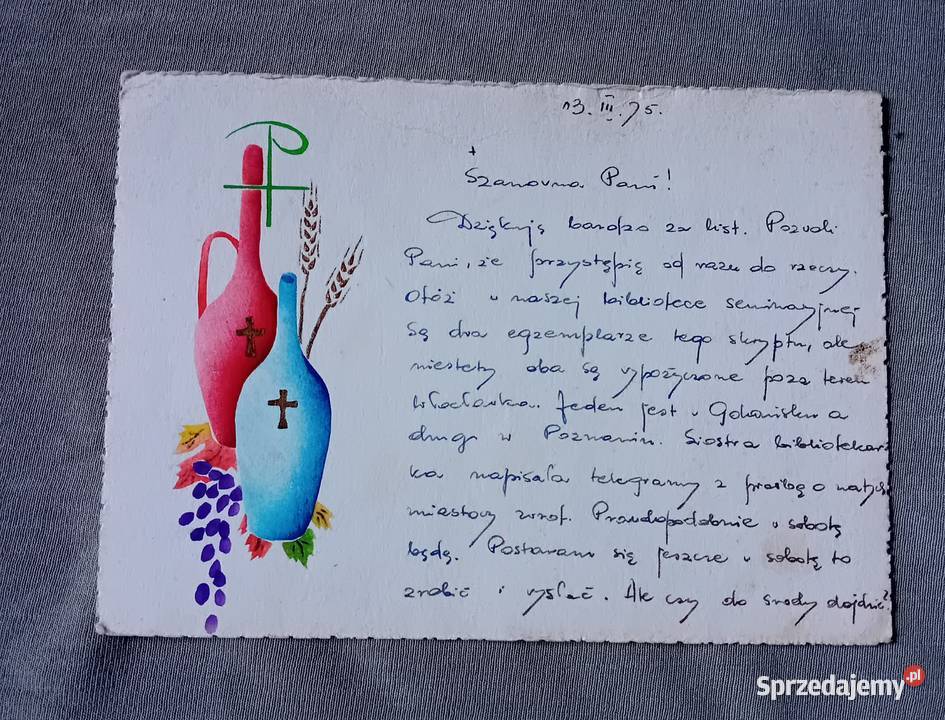 13. III. 75.
+
Szanowna Pani!
Dziękuję bardzo za list. Pozwoli
Pani, że przystąpię od razu do rzeczy.
Otóż w naszej bibliotece seminaryjnej
są dwa egzemplarze tego skryptu, ale
niestety oba są wypożyczone poza teren
Włocławka. Jeden jest w a
drugi w Poznaniu. Siostra bibliotekar
ka napisała telegramy z prośbą o natych
miastowy zwrot. Prawdopodobnie w sobotę
będą. Postaram się jeszcze w sobotę to
zrobić i wysłać. Ale czy do środy dojdzie?
Sprzedajemy.pl